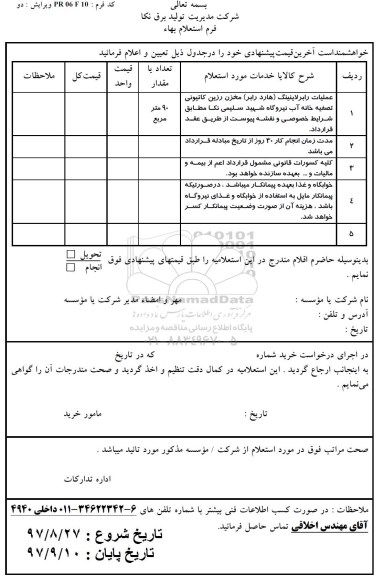 بسمه تعالی
کد فرم : PR 06 F 10 ویرایش : دو
شرکت مدیریت تولید برق نکا
فرم استعلام بهاء
خواهشمنداست آخرین قیمت پیشنهادی خود را درجدول ذیل تعیین و اعلام فرمائید
ردیف
شرح کالایا خدمات مورد استعلام
تعداد یا مقدار
قیمت واحد
قیمت کل
ملاحظات
۱
عملیات رابرلاینینگ (هارد رابر) مخزن رزین کاتیونی
تصفیه خانه آب نیروگاه شهید سلیمی نکا مطابق
شرایط خصوصی و نقشه پیوست از طریق عقد
قرارداد.
۹۰ متر
مربع
۲
مدت زمان انجام کار ۳۰ روز از تاریخ مبادله قرارداد
می باشد
۳
کلیه کسورات قانونی مشمول قرارداد اعم از بیمه و
مالیات و ... بعهده سازنده خواهد بود.
۴
خوابگاه و غذا بعهده پیمانکار میباشد . درصورتیکه
پیمانکار مایل به استفاده از خوابگاه و غذای نیروگاه
باشد ، هزینه آن از صورت وضعیت پیمانکار کسر
خواهد شد.
۵
بدینوسیله حاضرم اقلام مندرج در این استعلامیه را طبق قیمتهای پیشنهادی فوق
تحویل
انجام
نمایم .
نام شرکت یا مؤسسه :
مهر و امضاء مدیر شرکت یا مؤسسه
آدرس و تلفن :
تاریخ :
NamadData
پایگاه اطلاع رسانی مناقصه و مزایده
۰۲۱-۸۸۳۴۹۶۷۰-۵
در اجرای درخواست خرید شماره
که در تاریخ
به اینجانب ارجاع گردید . این استعلامیه در کمال دقت تنظیم و اخذ گردید و صحت مندرجات آن را گواهی
می‌نمایم .
تاریخ :
مامور خرید
صحت مراتب فوق در مورد استعلام از شرکت / مؤسسه مذکور مورد تائید میباشد .
اداره تدارکات
ملاحظات : در صورت کسب اطلاعات فنی بیشتر با شماره تلفن های ۶-۳۴۶۲۲۳۴۲-۰۱۱ داخلی ۴۹۴۰
آقای مهندس اخلاقی تماس حاصل فرمائید.
تاریخ شروع : ۹۷/۸/۲۷
تاریخ پایان : ۹۷/۹/۱۰